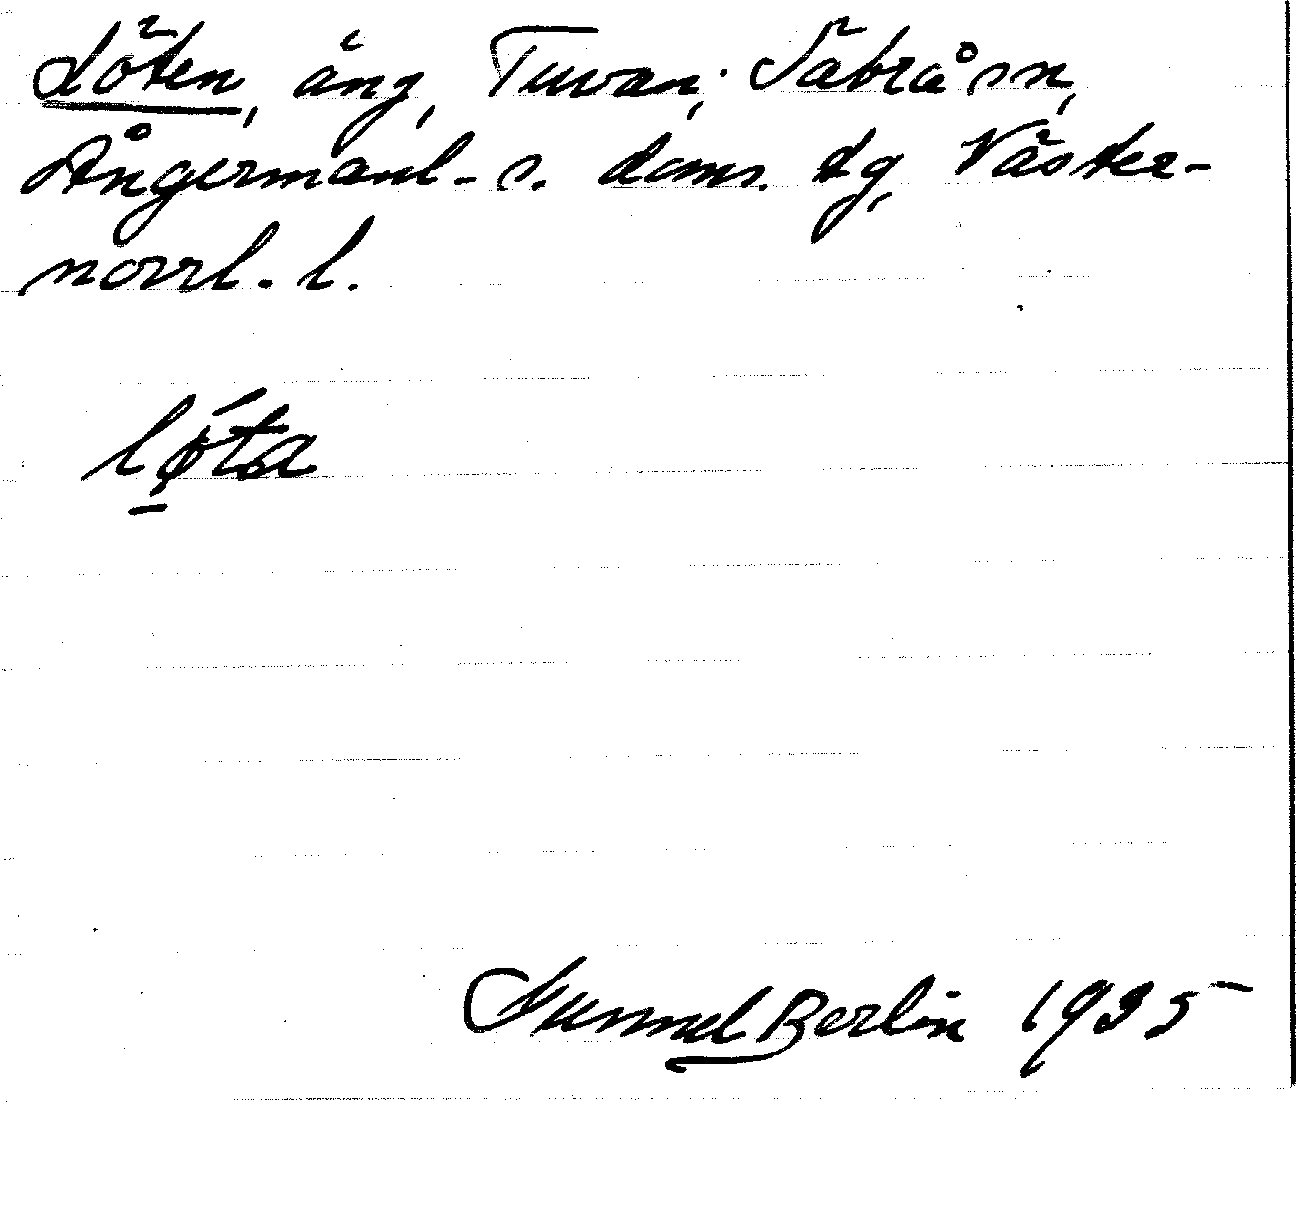 Löten, äng, Tuvan, Säbrå sn,
Ångermanl. s. doms. tg, Väster-
norrl. l.
lǿ̨ta
Gunnel Berlin 1935